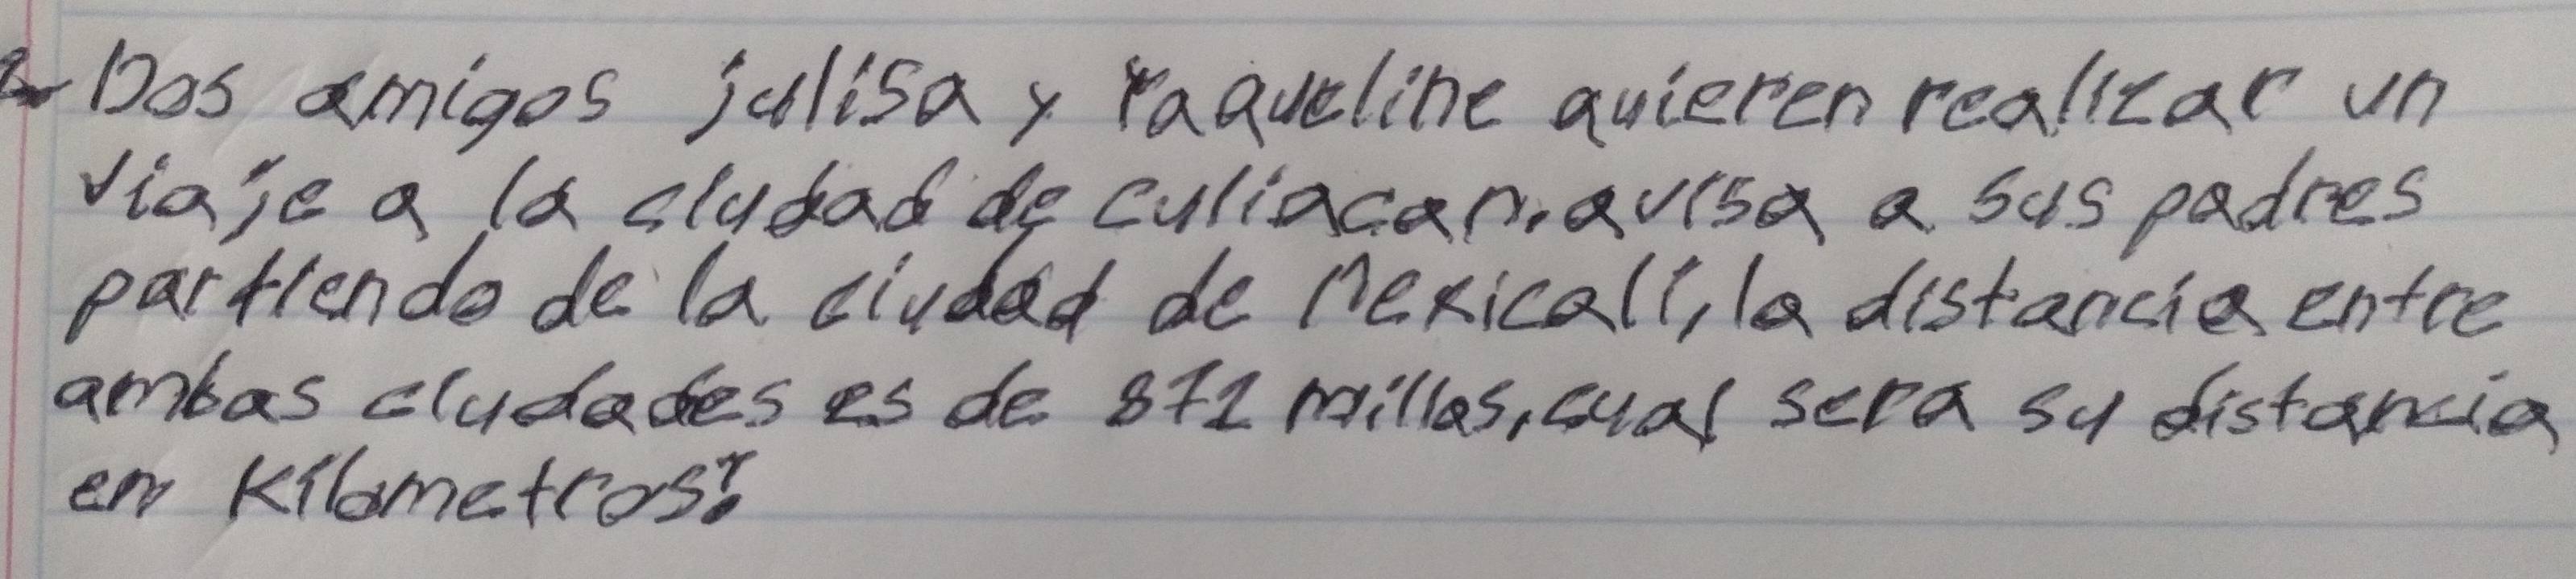 2- Dos amigos julisa y Yaqueline quieren realizar un
viaje a la ciudad de culiacan, avisa a sus padres
partiendo de la ciudad de Mexicali, la distancia entre
ambas ciudades es de 871 millas, cual sera su distancia
en Kilometros?